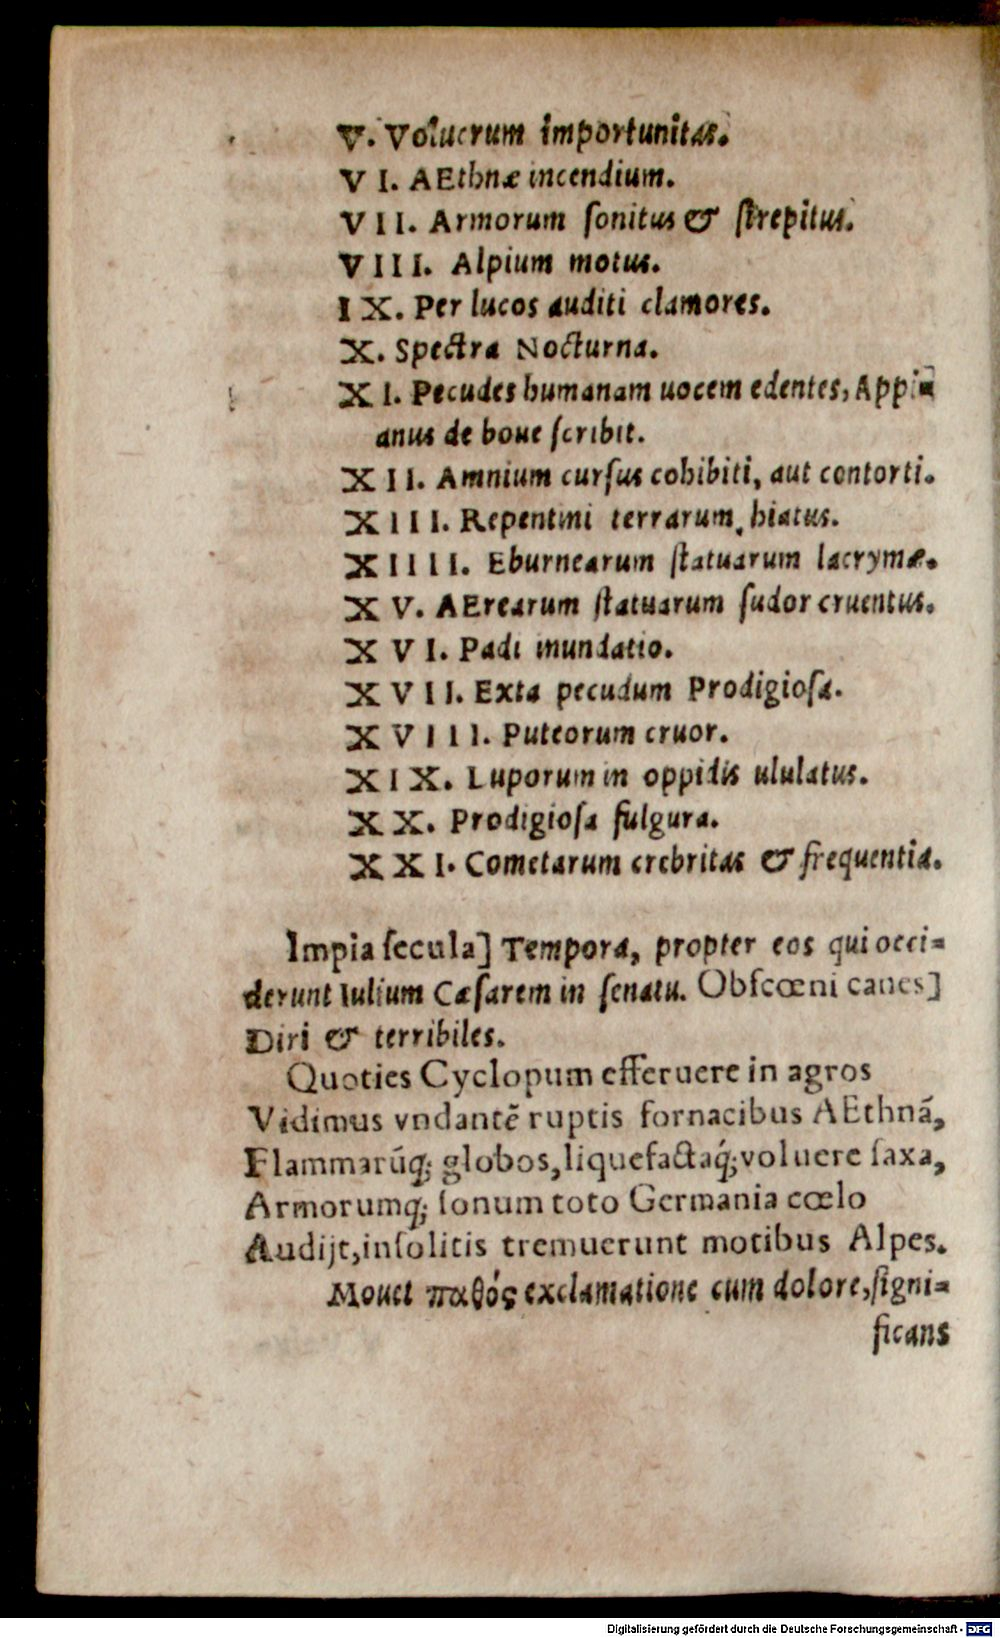 V. Volucrum importunitas.
VI. AEthnæ incendium.
VII. Armorum ſonitus & ſtrepitus.
VIII. Alpium motus.
IX. Per lucos auditi clamores.
X. Spectra Nocturna.
XI. Pecudes humanam uocem edentes, Appi=
anus de boue ſcribit.
XII. Amnium curſus cohibiti, aut contorti.
XIII. Repentini terrarum hiatus.
XIIII. Eburnearum ſtatuarum lacrymæ.
XV. AErearum ſtatuarum ſudor cruentus.
XVI. Padi inundatio.
XVII. Exta pecudum Prodigioſa.
XVIII. Puteorum cruor.
XIX. Luporum in oppidis ululatus.
XX. Prodigioſa fulgura.
XXI. Cometarum crebritas & frequentia.
Impia ſecula] Tempora, propter eos qui occi=
derunt Iulium Cæſarem in ſenatu. Obſcœni canes]
Diri & terribiles.
Quoties Cyclopum efferuere in agros
Vidimus vndantē ruptis fornacibus AEthnā,
Flammarūq; globos, liquefactaq́; voluere ſaxa,
Armorumq; ſonum toto Germania cœlo
Audijt, inſolitis tremuerunt motibus Alpes.
Mouet παθός exclamatione cum dolore, ſigni=
ficans
Digitalisierung gefördert durch die Deutsche Forschungsgemeinschaft - DFG